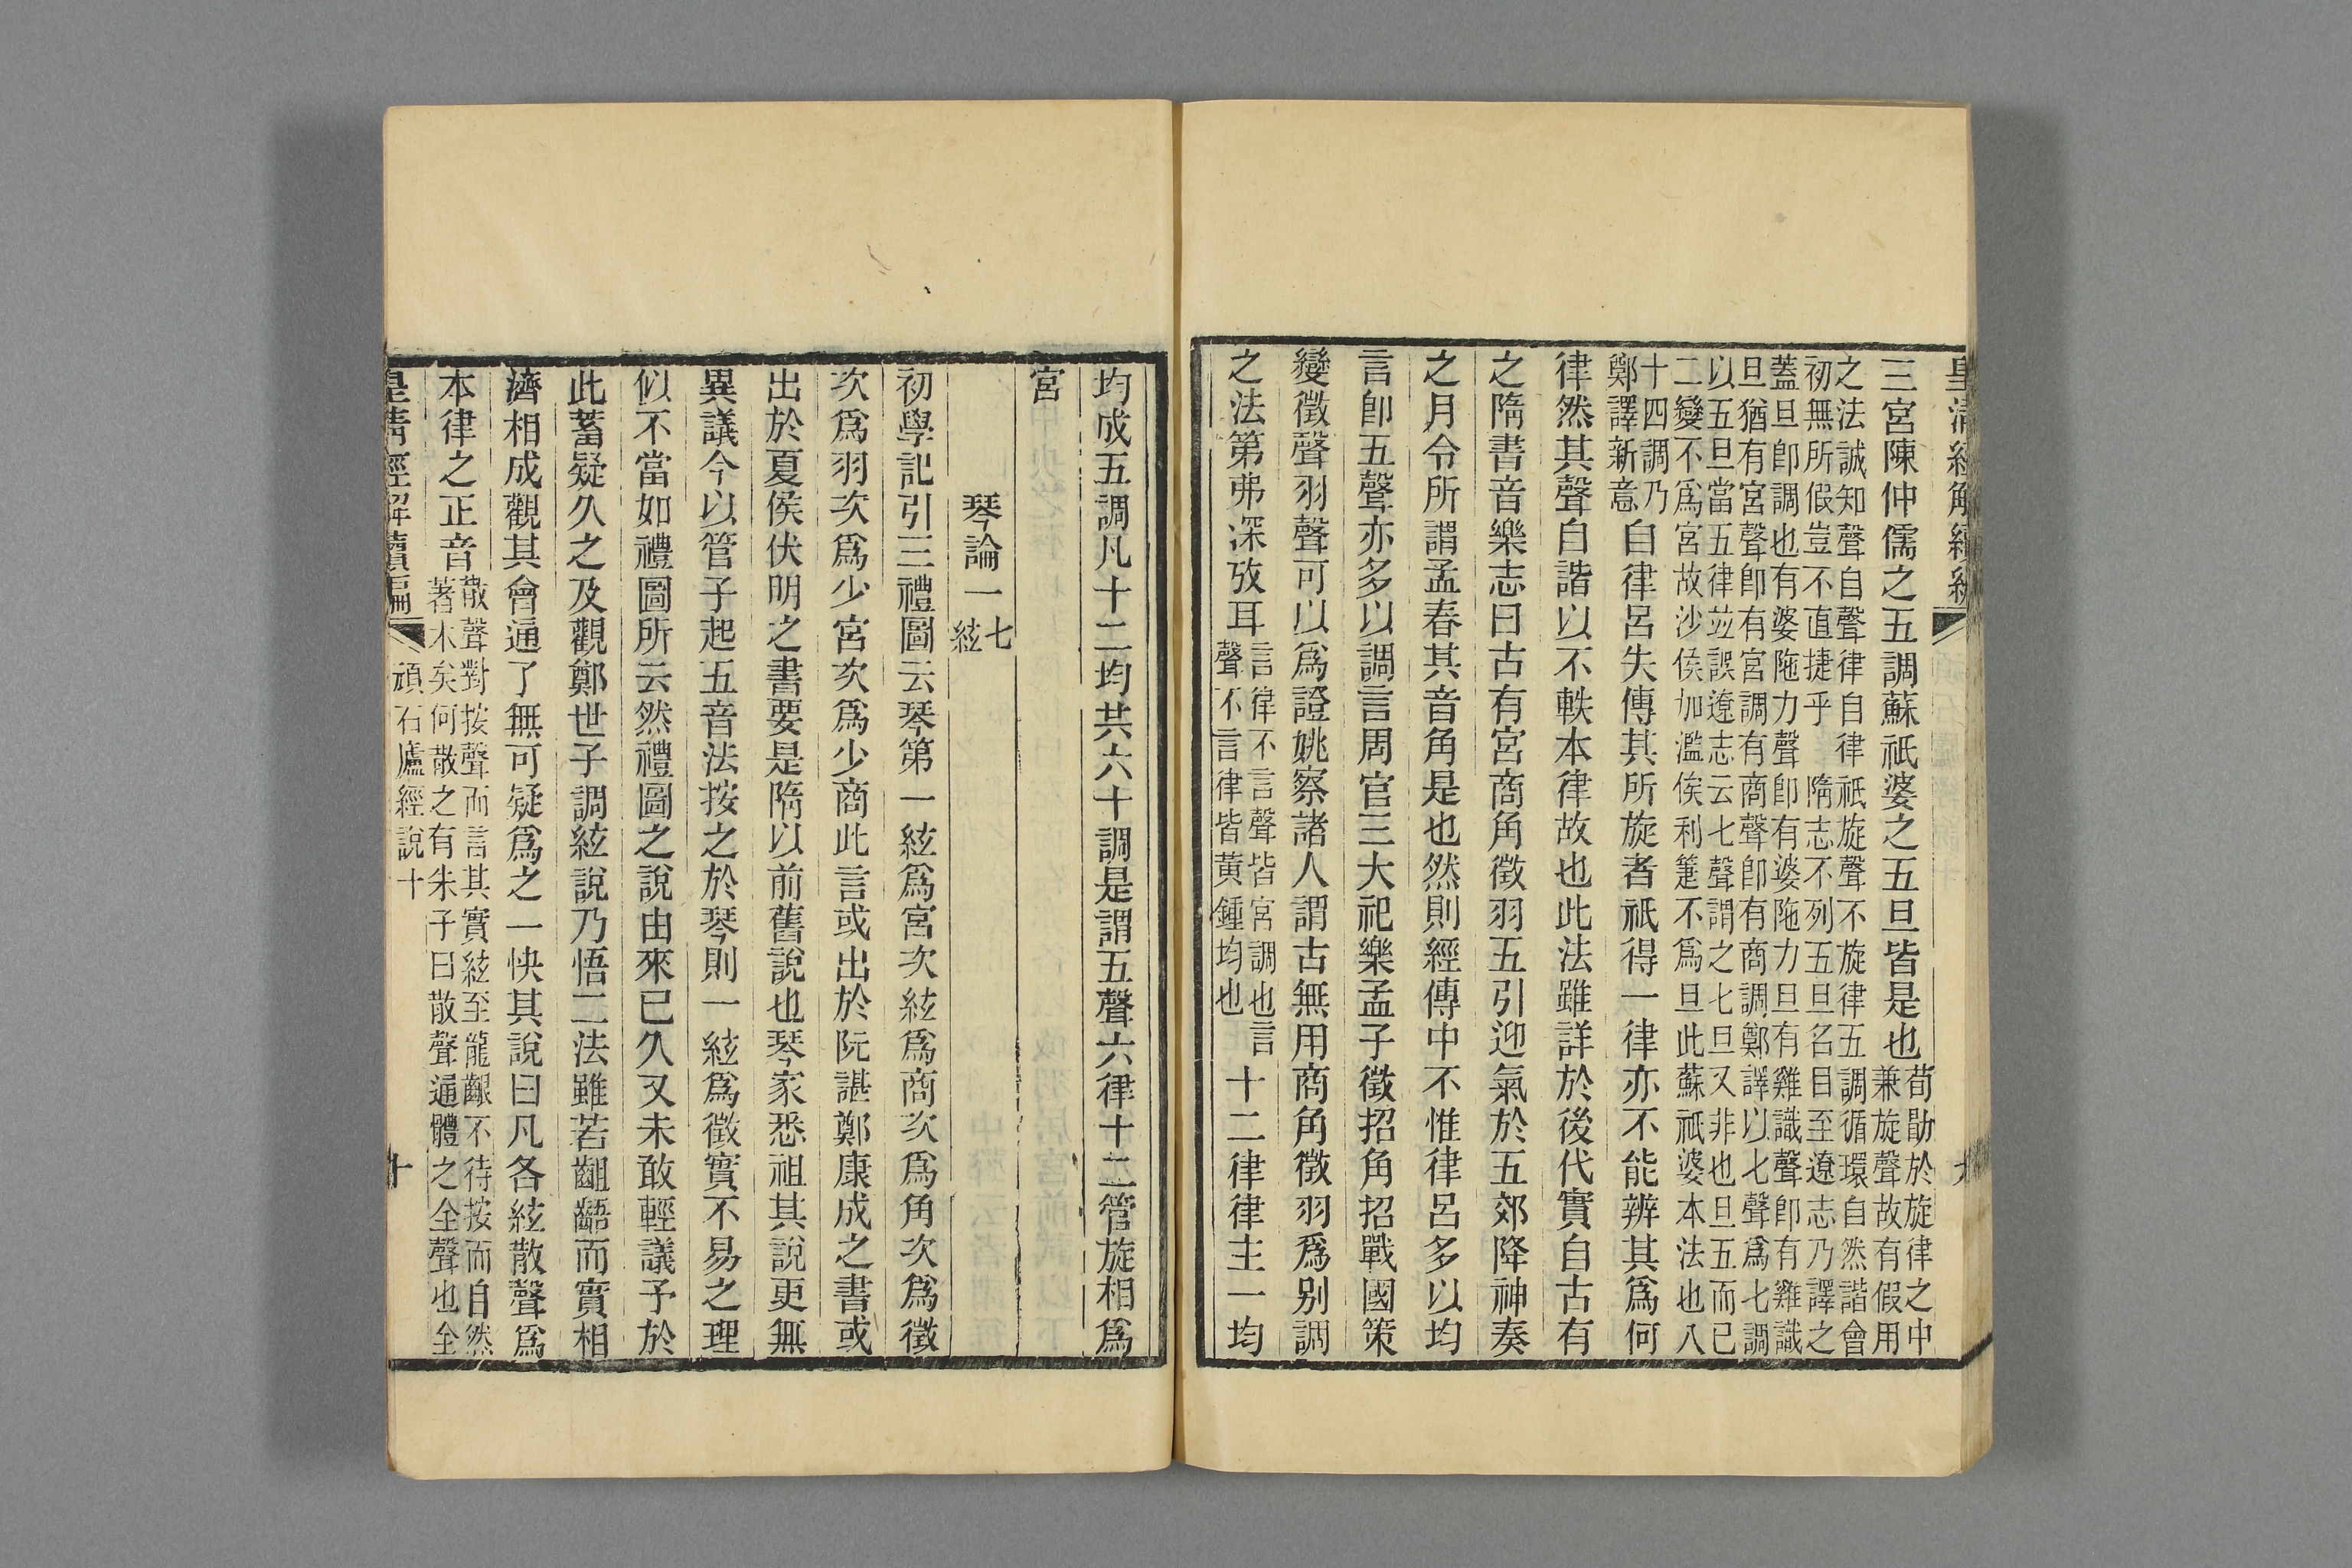 皇清經解續編
九
三宮陳仲儒之五調蘇祇婆之五旦皆是也荀勖於旋律之中
兼旋聲故有假用
之法誠知聲自聲律自律祇旋聲不旋律五調循環自然諧會
初無所假豈不直捷乎 隋志不列五旦名目至遼志乃譯之
蓋旦卽調也有婆陁力聲卽有婆陁力旦有雞識聲卽有雞識
旦猶有宮聲卽有宮調有商聲卽有商調鄭譯以七聲爲七調
以五旦當五律竝誤遼志云七聲謂之七旦又非也旦五而已
二變不爲宮故沙侯加濫侯利箑不爲旦此蘇祇婆本法也八
十四調乃
鄭譯新意自律呂失傳其所旋者祇得一律亦不能辨其爲何
律然其聲自諧以不軼本律故也此法雖詳於後代實自古有
之隋書音樂志曰古有宮商角徵羽五引迎氣於五郊降神奏
之月令所謂孟春其音角是也然則經傳中不惟律呂多以均
言卽五聲亦多以調言周官三大祀樂孟子徵招角招戰國策
變徵聲羽聲可以爲證姚察諸人謂古無用商角徵羽爲別調
之法第弗深攷耳言律不言聲皆宮調也言
聲不言律皆黃鍾均也十二律律主一均
均成五調凡十二均共六十調是謂五聲六律十二管旋相爲
宮
琴論一七
絃
初學記引三禮圖云琴第一絃爲宮次絃爲商次爲角次爲徵
次爲羽次爲少宮次爲少商此言或出於阮諶鄭康成之書或
出於夏侯伏明之書要是隋以前舊說也琴家悉祖其說更無
異議今以管子起五音法按之於琴則一絃爲徵實不易之理
似不當如禮圖所云然禮圖之說由來已久又未敢輕議予於
此蓄疑久之及觀鄭世子調絃說乃悟二法雖若齟齬而實相
濟相成觀其會通了無可疑爲之一快其說曰凡各絃散聲爲
本律之正音散聲對按聲而言其實絃至龍齦不待按而自然
著木矣何散之有朱子曰散聲通體之全聲也全
皇清經解續編
頑石廬經說十
十